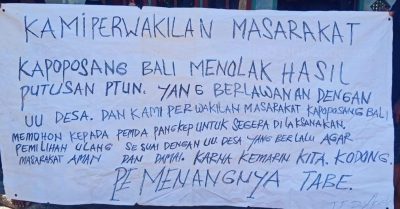 KAMI PERWAKILAN MASARAKAT
KAPOPOSANG BALI MENOLAK HASIL
PUTUSAN PTUN. YANG BERLAWANAN DENGAN
UU DESA. DAN KAMI PERWAKILAN MASARAKAT KAPOPOSANG BALI
MEMOHON KEPADA PEMDA PANGKEP UNTUK SEGERA DI LAKSANAKAN.
PEMILIHAN ULANG SESUAI DENGAN UU. DESA YANG BERLALU AGAR
MASARAKAT AMAN DAN DAMAI. KARNA KEMARIN KITA. KODONG.
PEMENANGNYA TABE.